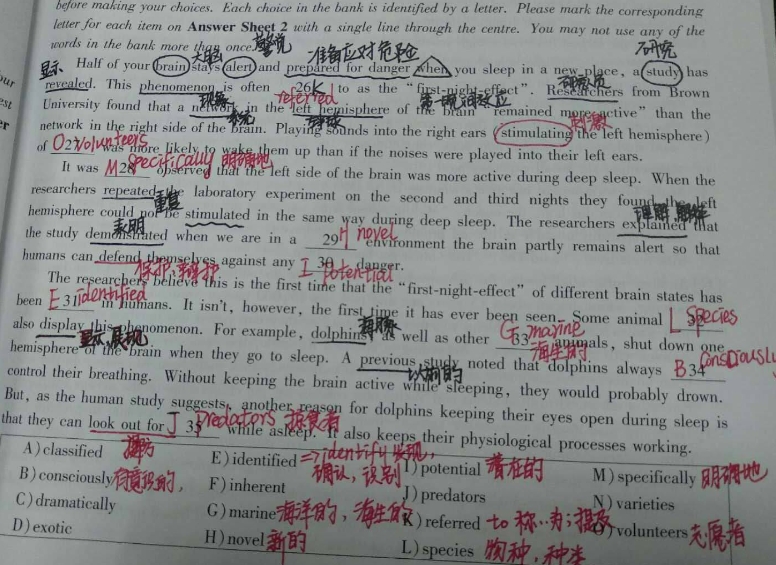 before making your choices. Each choice in the bank is identified by a letter. Please mark the corresponding
letter for each item on Answer Sheet 2 with a single line through the centre. You may not use any of the
words in the bank more than once.
警觉
大脑
准备应对危险
研究
显示
Half of your brain stays alert and prepared for danger when you sleep in a new place, a study has
revealed. This phenomenon is often 26 K to as the "first-night-effect". Researchers from Brown
referred
University found that a network in the left hemisphere of the brain "remained more active" than the
network in the right side of the brain. Playing sounds into the right ears (stimulating the left hemisphere)
刺激
of O 27 volunteers was more likely to wake them up than if the noises were played into their left ears.
It was M 28 specifically 明确地 observed that the left side of the brain was more active during deep sleep. When the
researchers repeated the laboratory experiment on the second and third nights they found the left
重复
hemisphere could not be stimulated in the same way during deep sleep. The researchers explained that
表明
the study demonstrated when we are in a 29 H novel environment the brain partly remains alert so that
humans can defend themselves against any I 30 potential danger.
The researchers believe this is the first time that the "first-night-effect" of different brain states has
been E 31 identified in humans. It isn't, however, the first time it has ever been seen. Some animal L species
also display this phenomenon. For example, dolphins, as well as other G 33 marine animals, shut down one
海豚
海生的
hemisphere of the brain when they go to sleep. A previous study noted that dolphins always B 34 consciously
以前的
control their breathing. Without keeping the brain active while sleeping, they would probably drown.
But, as the human study suggests, another reason for dolphins keeping their eyes open during sleep is
that they can look out for J 35 predators 掠食者 while asleep. It also keeps their physiological processes working.
A) classified
B) consciously 有意识的,
C) dramatically
D) exotic
E) identified ⇒ identify 发现,
确认, 识别
F) inherent
G) marine 海洋的, 海生的
H) novel 新的
I) potential 潜在的
J) predators
K) referred to 称..为;提及
L) species 物种, 种类
M) specifically 明确地
N) varieties
O) volunteers 志愿者